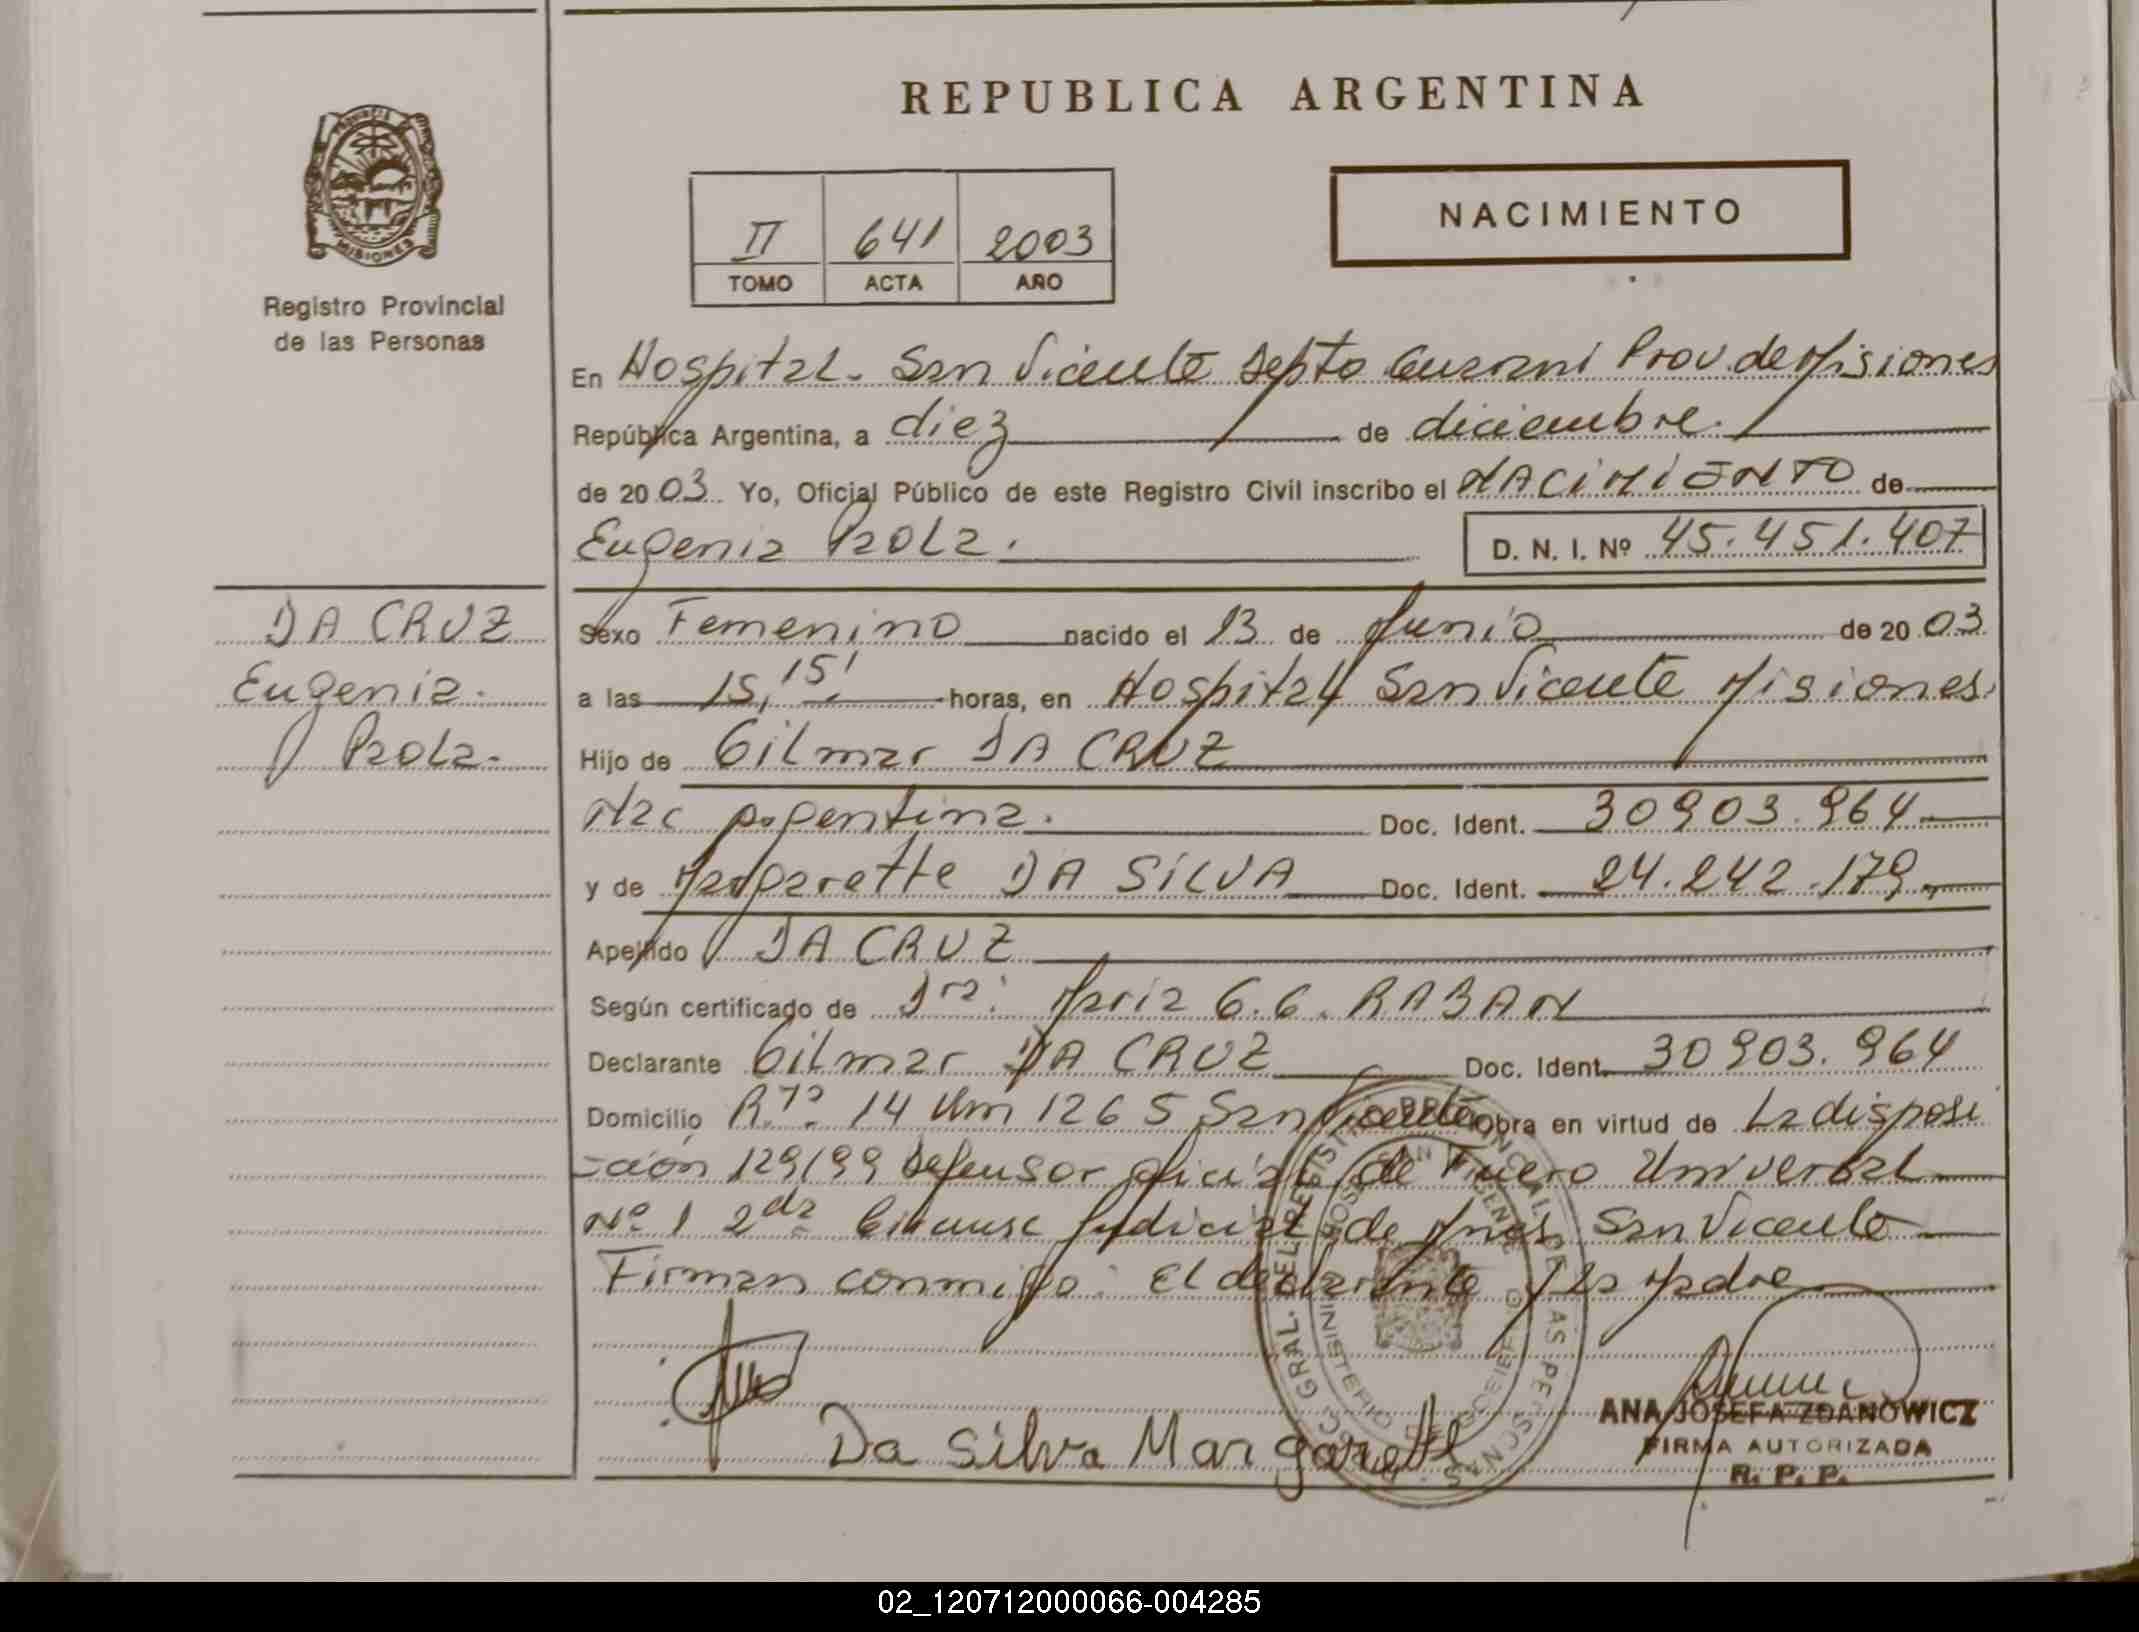 REPUBLICA ARGENTINA
PROVINCIA DE MISIONES
Registro Provincial
de las Personas
II 641 2003
TOMO ACTA AÑO
NACIMIENTO
En Hospital San Vicente Depto Guarani Prov. de Misiones
República Argentina, a diez de diciembre.
de 20 03 Yo, Oficial Público de este Registro Civil inscribo el NACIMIENTO de
Eugenia Paola. D. N. I. Nº 45.451.407
DA CRUZ
Eugenia
Paola.
Sexo Femenino nacido el 13 de Junio de 20 03
a las 15,15' horas, en Hospital San Vicente Misiones.
Hijo de Gilmar DA CRUZ
Nac Argentina. Doc. Ident. 30903.964
y de Margarette DA SILVA Doc. Ident. 24.242.179
Apellido DA CRUZ
Según certificado de Dra: Maria G.G. RABAN
Declarante Gilmar DA CRUZ Doc. Ident. 30903.964
Domicilio Rta. 14 Km 1265 San Vicente Obra en virtud de La disposi
-ción 129/99 Defensor oficial de Fuero Universal
Nº 1 2da Judicial de Mnes San Vicente
Firman conmigo: El declarante y la Madre
Da Silva Margarett
ANA JOSEFA ZDANOWICZ
FIRMA AUTORIZADA
R. P. P.
02_120712000066-004285